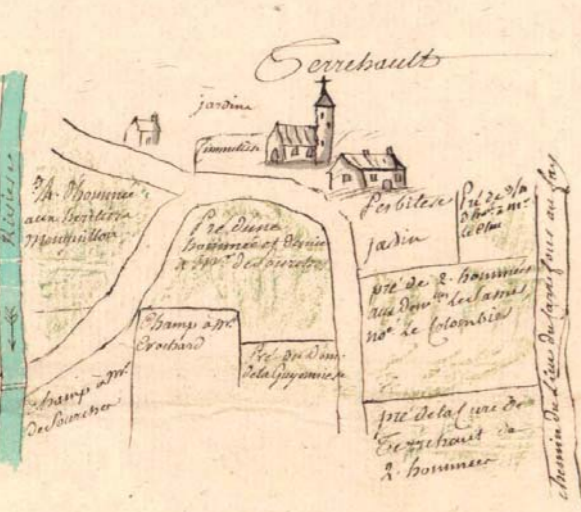 Terrehault
jardin
Cimmetiere
Rivière
d'hommée
aux heritiers
Monguillon
Pré d'une
hommée et demie
à Mr. de Sourches
Presbitere
jardin
Pré de
d'ho. à Mr.
pré de 2. hommées
aux
no. Le Colombier
Champ à Mr.
Crochard
Pré du Dom.
de la Guyonniere
Champ à Mr.
de Sourches
pré de la Cure de
Terrehault de
2. hommées
chemin du Lieu du au fay